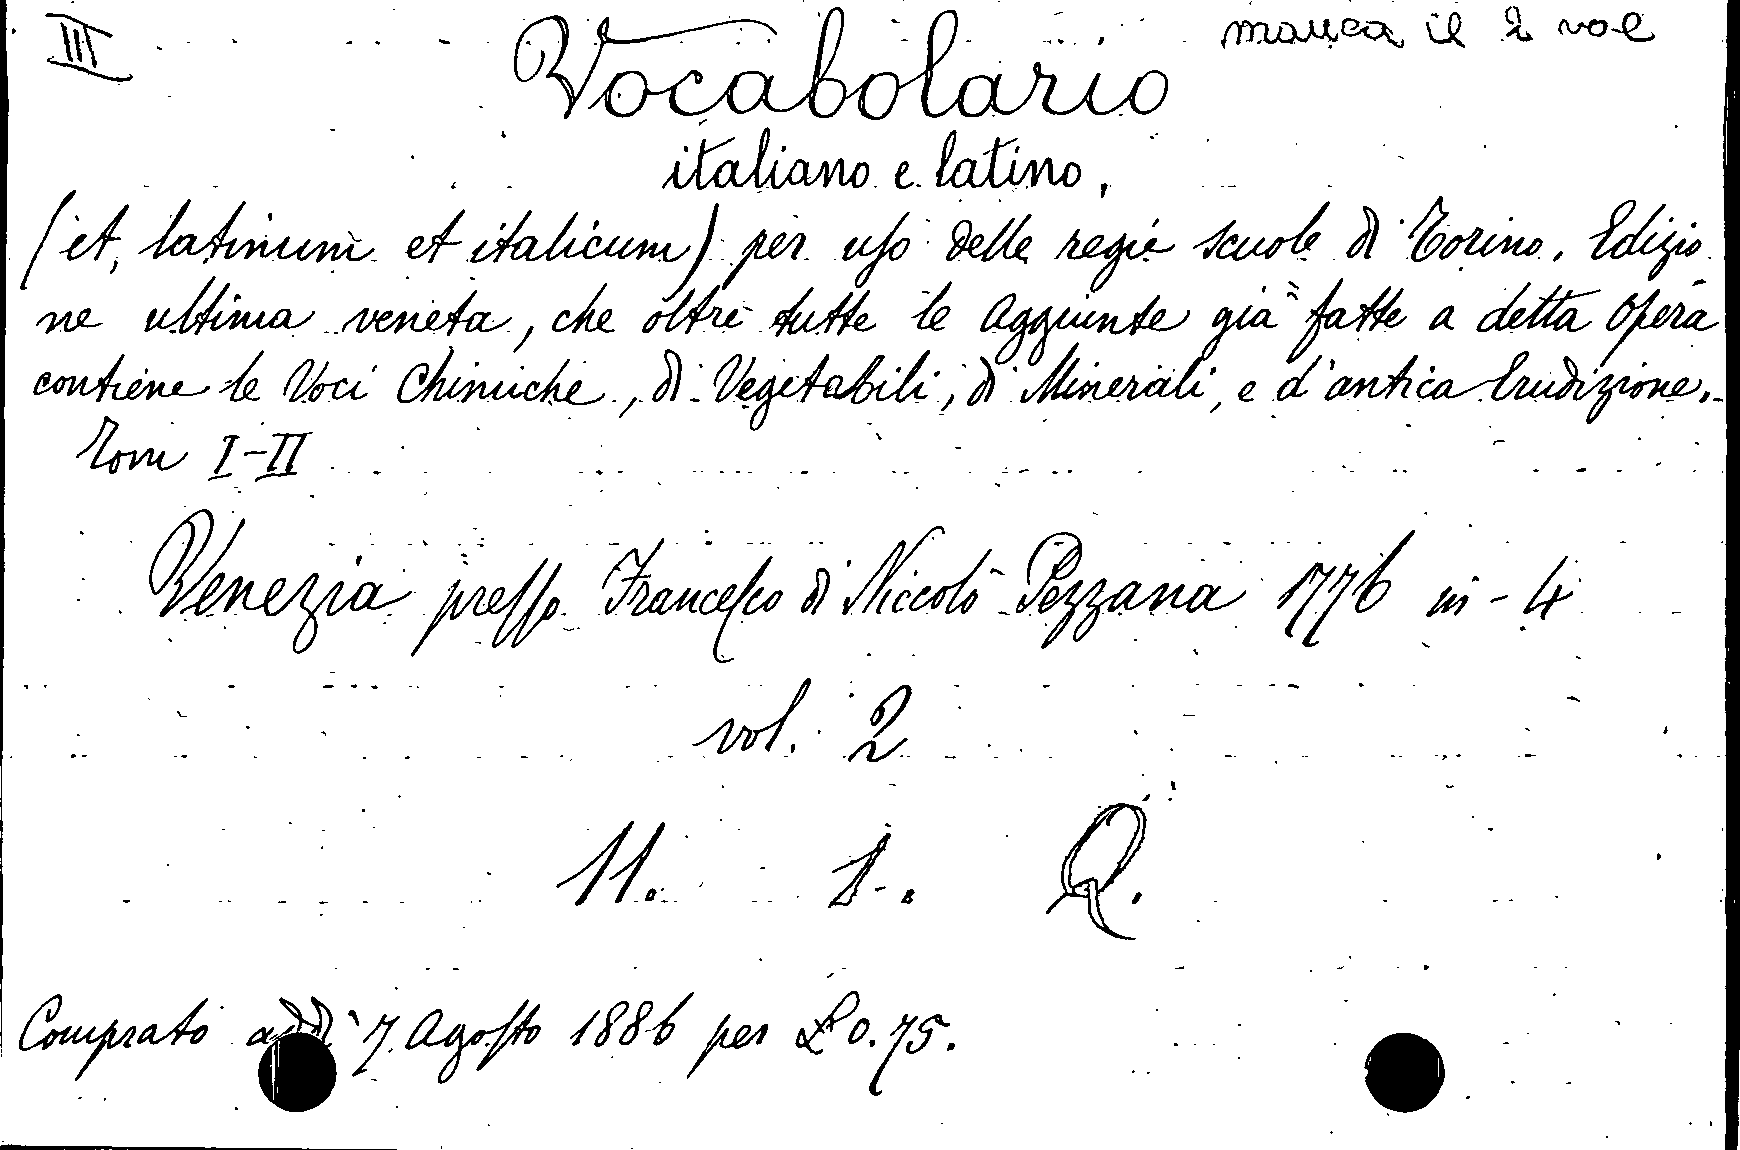 III
manca il 2 vol
Vocabolario
italiano e latino,
(et, latinum et italicum) per uso delle regie scuole di Torino. Edizio
ne ultima veneta, che oltre tutte le aggiunte già fatte a detta opera
contiene le Voci Chimiche, di Vegetabili, di Minerali, e d'antica Erudizione.
Tom I-II
Venezia presso Francesco di Niccolò Pezzana 1776 in-4
vol. 2
11. 1. Q.
Comprato addì 7 Agosto 1886 per £ 0.75.